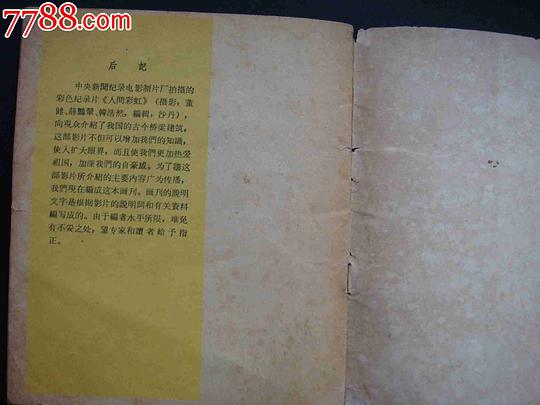 7788.com
中国收藏热线
后記
中央新聞纪录电影制片厂拍摄的
彩色纪录片《人間彩虹》（摄影：董
健、薛鸝翚、韓浩然，編輯：沙丹），
向观众介紹了我国的古今桥梁建筑。
这部影片不但可以增加我們的知識，
使人扩大眼界，而且使我們更加热爱
祖国，加深我們的自豪感。为了讓这
部影片所介紹的主要内容广为传播，
我們現在編成这本画刊。画刊的說明
文字是根据影片的說明詞和有关資料
編写成的。由于編者水平所限，难免
有不妥之处，望专家和讀者給予指
正。